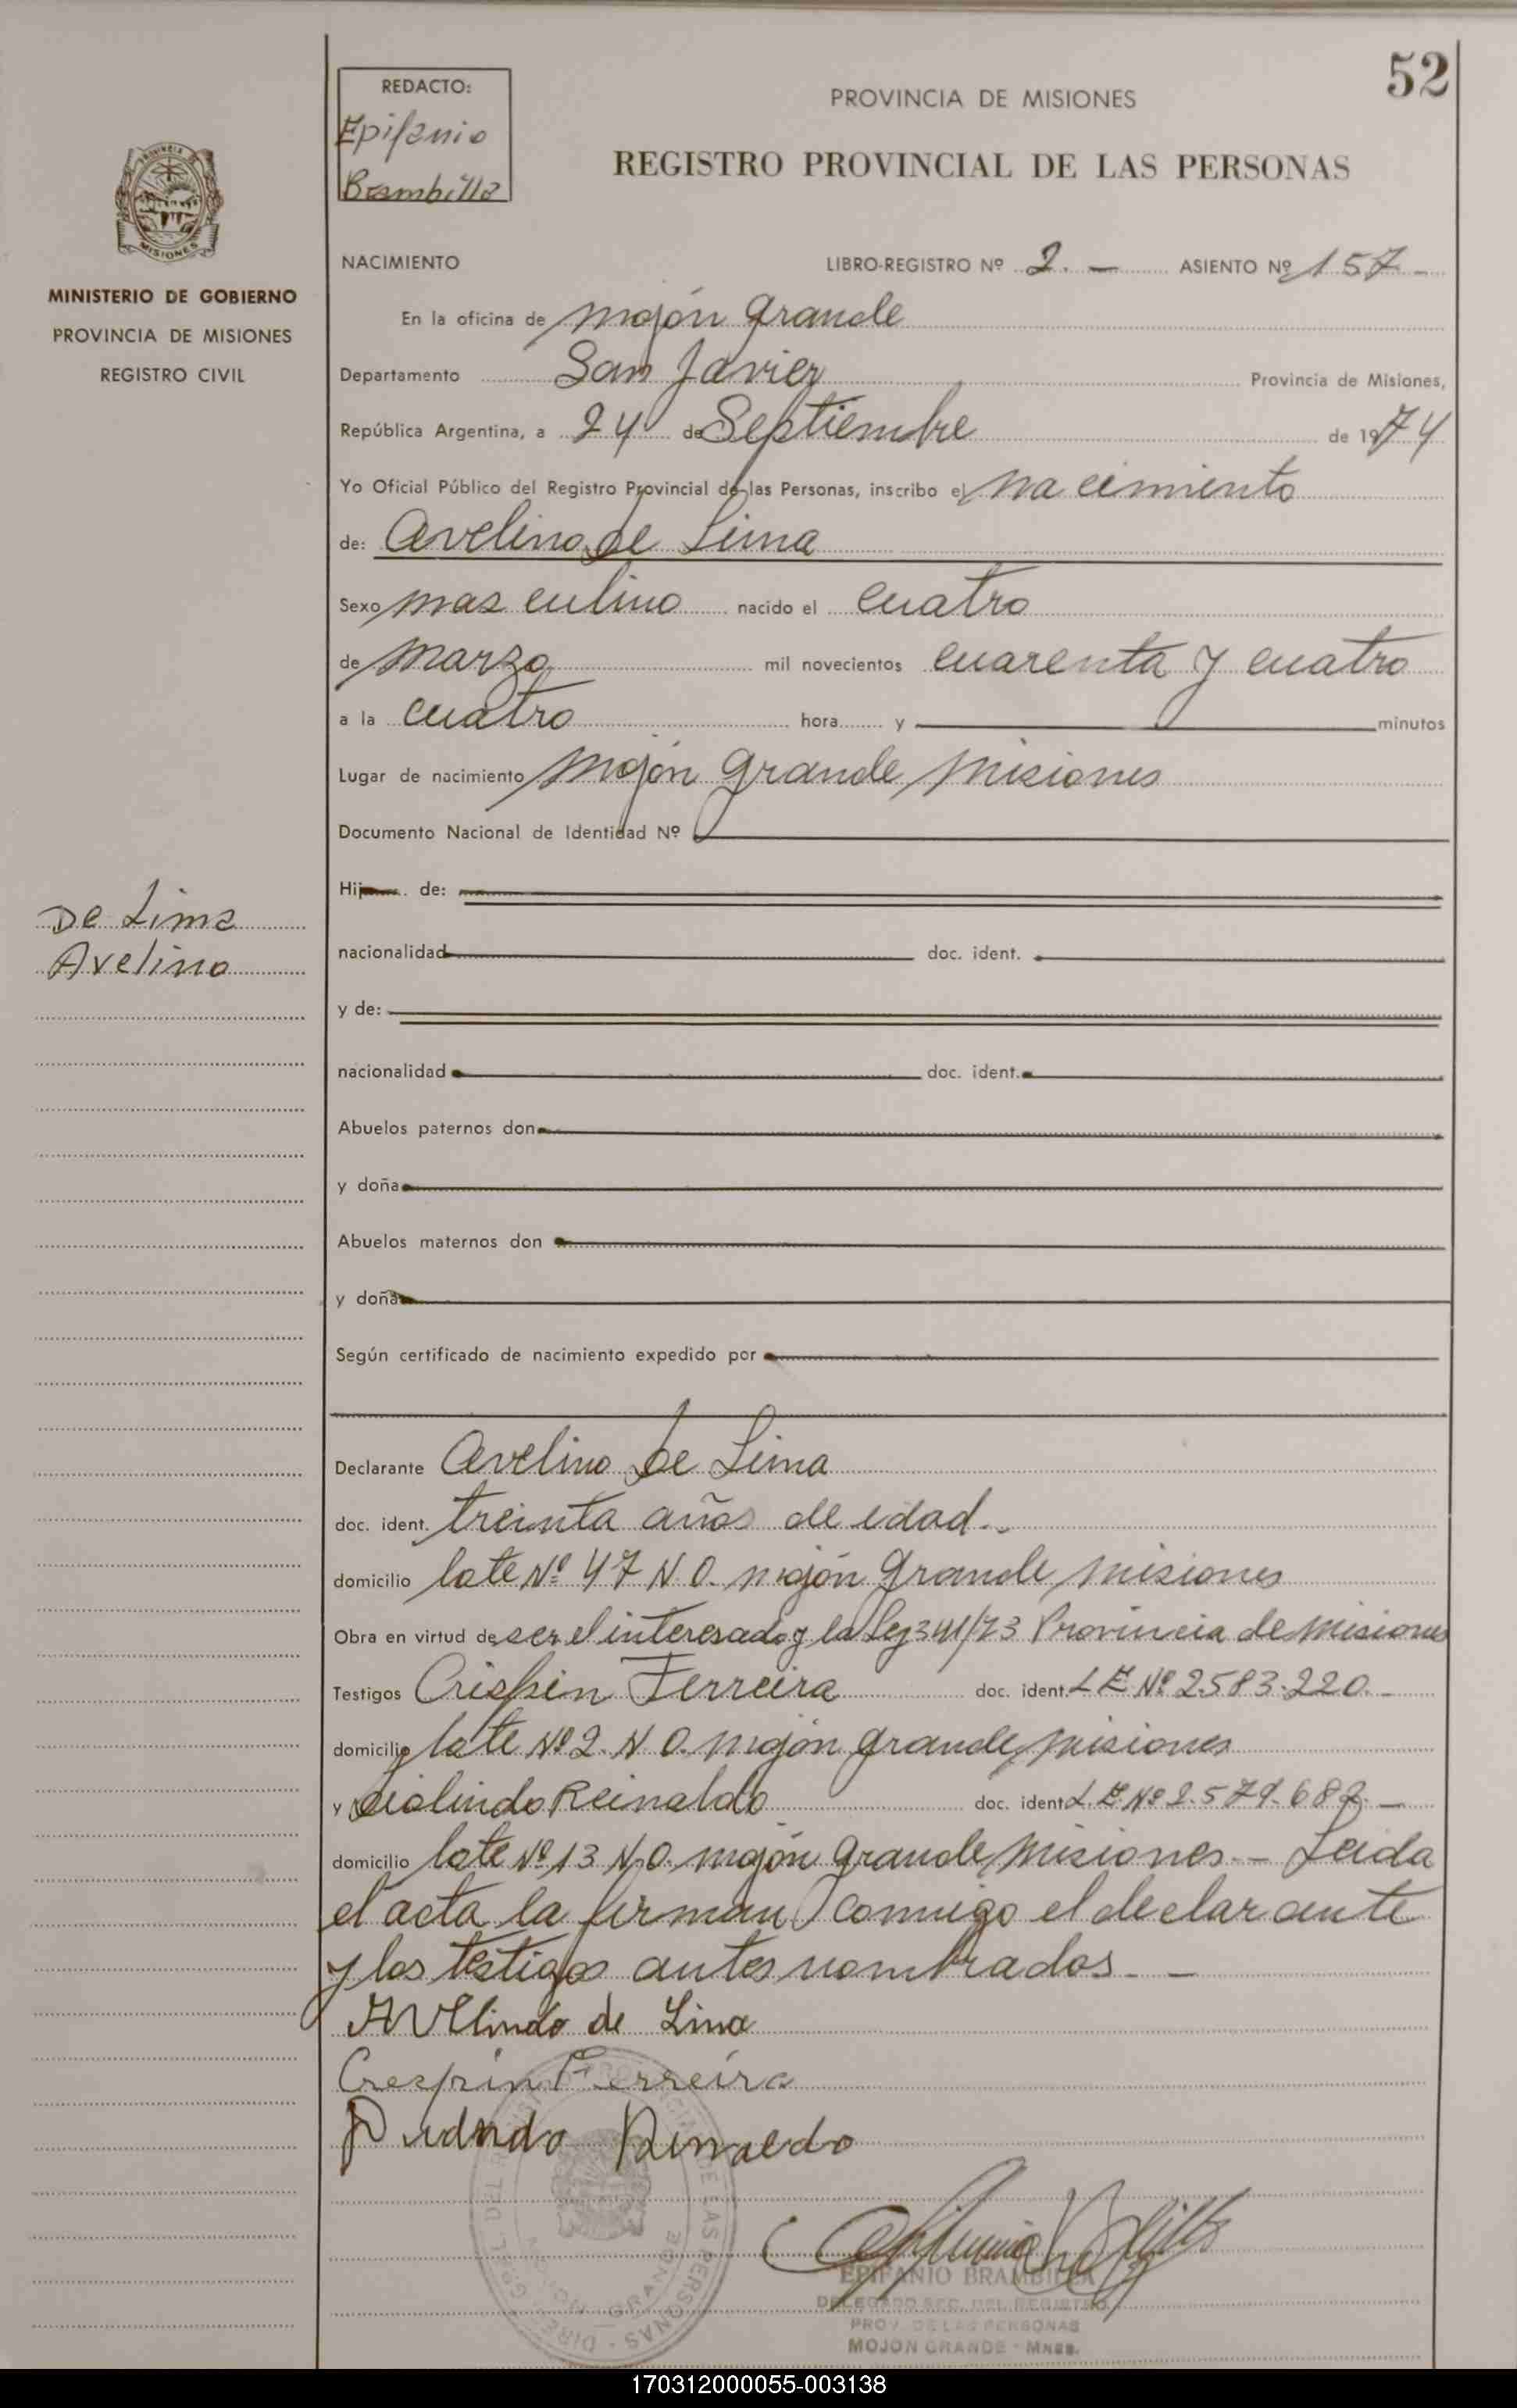 52
REDACTO:
Epifanio
Brambilla
PROVINCIA DE MISIONES
REGISTRO PROVINCIAL DE LAS PERSONAS
MISIONES
MINISTERIO DE GOBIERNO
PROVINCIA DE MISIONES
REGISTRO CIVIL
De Lima
Avelino
NACIMIENTO LIBRO-REGISTRO Nº 2. — ASIENTO Nº 157 -
En la oficina de mojón grande
Departamento San Javier Provincia de Misiones,
República Argentina, a 24 de Septiembre de 1974
Yo Oficial Público del Registro Provincial de las Personas, inscribo el nacimiento
de: Avelino de Lima
Sexo masculino nacido el cuatro
de marzo mil novecientos cuarenta y cuatro
a la cuatro hora y minutos
Lugar de nacimiento mojón grande, misiones
Documento Nacional de Identidad Nº
Hij de:
nacionalidad doc. ident.
y de:
nacionalidad doc. ident.
Abuelos paternos don
y doña
Abuelos maternos don
y doña
Según certificado de nacimiento expedido por
Declarante Avelino de Lima
doc. ident. treinta años de edad.-
domicilio lote Nº 47 N.O. mojón grande, misiones
Obra en virtud de ser el interesado y la Ley 341/73 Provincia de misiones
Testigos Crispin Ferreira doc. ident. L E Nº 2.583.220.-
domicilio lote Nº 2. N.O. mojón grande, misiones
y Reinaldo doc. ident. L.E. Nº 2.579.682.—
domicilio lote Nº 13 N.O. mojón grande, misiones.- Leida
el acta la firman comigo el declarante
y los testigos antes nombrados.-
AVElindo de Lima
Crespin Ferreira
Rinaldo
EPIFANIO BRAMBILLA
DELEGADO SEC. DEL REGISTRO
PROV. DE LAS PERSONAS
MOJON GRANDE - Mnes.
170312000055-003138